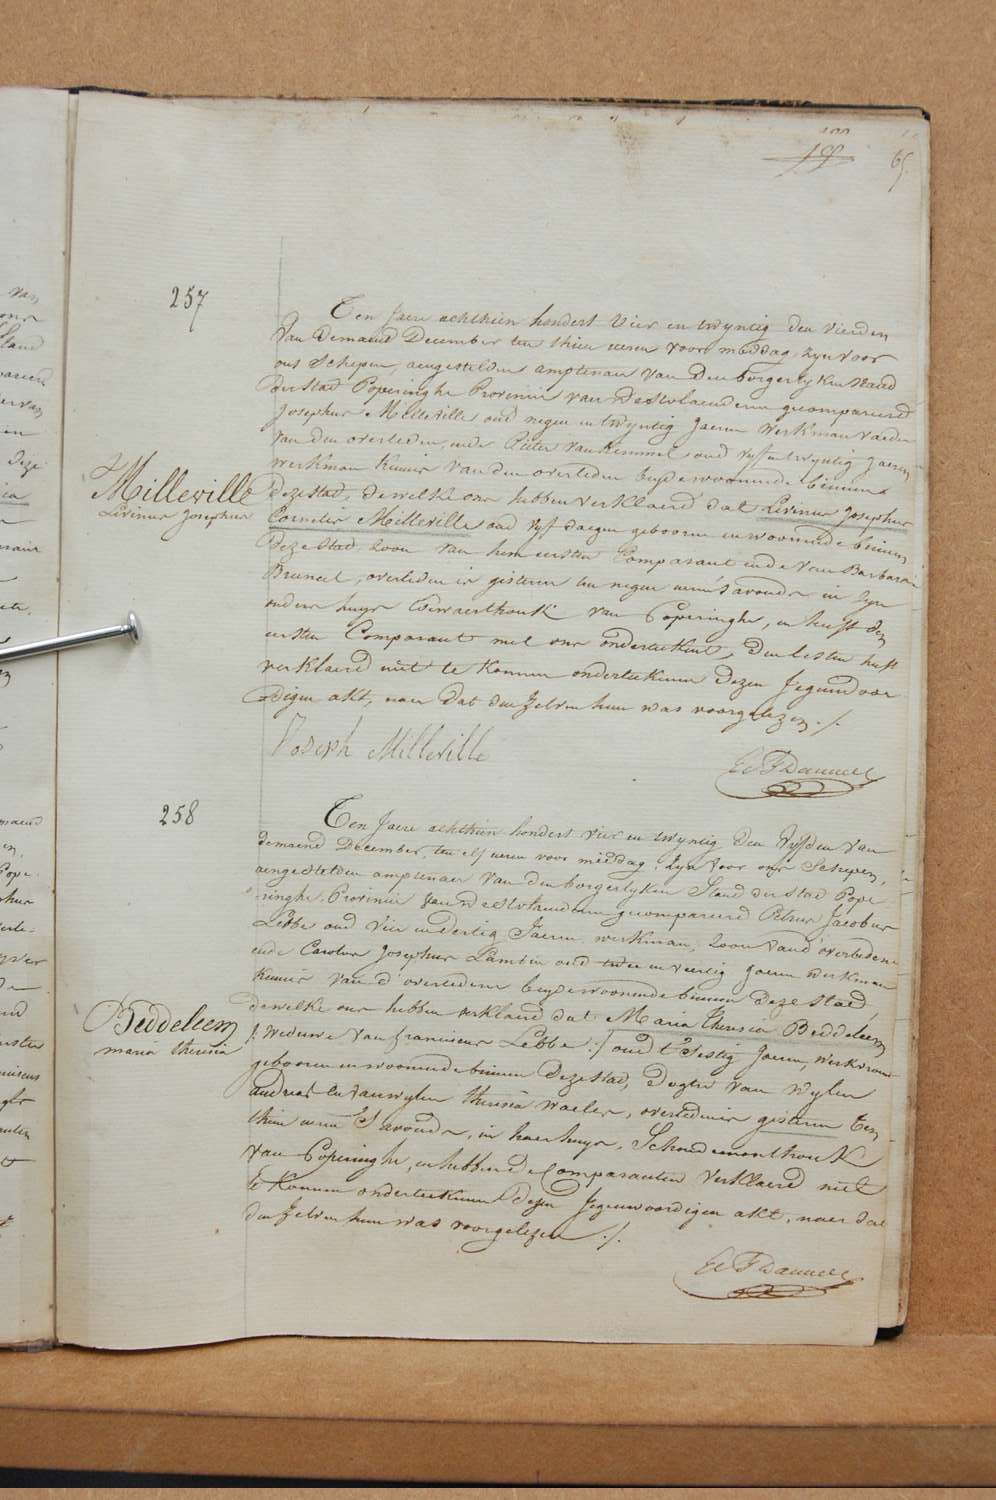 65
257
Ten Jaere achthien hondert Vier en twyntig den Vierden
Van de maend December ten thien ueren voor middag, zyn voor
ons Schepen, aengestelden amptenaer van den borgerlyken Stand
der Stad Poperinghe Provincie van Westvlaenderen gecompareerd
Josephus Milleville oud negen en twyntig Jaeren Werkman vader
Van den overleden, ende Pieter Van Kemmel oud vyf en twyntig Jaeren
werkman Kennis van den overleden beyde woonende binnen
deze stad, dewelke ons hebben verklaerd dat Livinus Josephus
Cornelis Milleville oud vyf daegen gebooren en woonende binnen
deze Stad, zoon van hem eersten Comparant ende van Barbara
Bruneel, overleden is gisteren ten negen ueren s'avonds in zyn
ouders huys Edewaerthoek van Poperinghe, en heeft den
eersten Comparant met ons onderteekent, den lesten heeft
verklaerd niet te konnen onderteekenen dezen Jegenwoor
digen akt, naer dat den zelven hun was voorgelezen ./.
Milleville
Livinus Josephus
Joseph Milleville
258
Ten Jaere achthien hondert vier en twyntig den Vyfden van
de maend December, ten elf ueren voor middag, zyn voor ons Schepen,
aengestelden amptenaer van den borgerlyken Stand der Stad Pope
ringhe, Provincie van Westvlaenderen gecompareerd Petrus Jacobus
Lebbe oud Vier en dertig Jaeren, werkman, zoon van d'overledene
ende Carolus Josephus Lambin oud twee en veertig Jaeren werkman
kennis van d'overledene beyde woonende binnen deze stad,
dewelke ons hebben verklaerd dat Maria Theresia Beddeleem
/: Weduwe van Franciscus Lebbe :/ oud t'Sestig Jaeren, werkvrouw
gebooren en woonende binnen deze stad, dogter van wylen
andries en van wylen theresia waeles, overleden is gisteren ten
thien ueren S'avonds, in haer huys, Schoudemonthoek
van Poperinghe, en hebben de Comparanten verklaerd niet
te konnen onderteekenen dezen Jegenwoordigen akt, naer dat
den zelven hun was voorgelezen ./.
Beddeleem
maria theresia